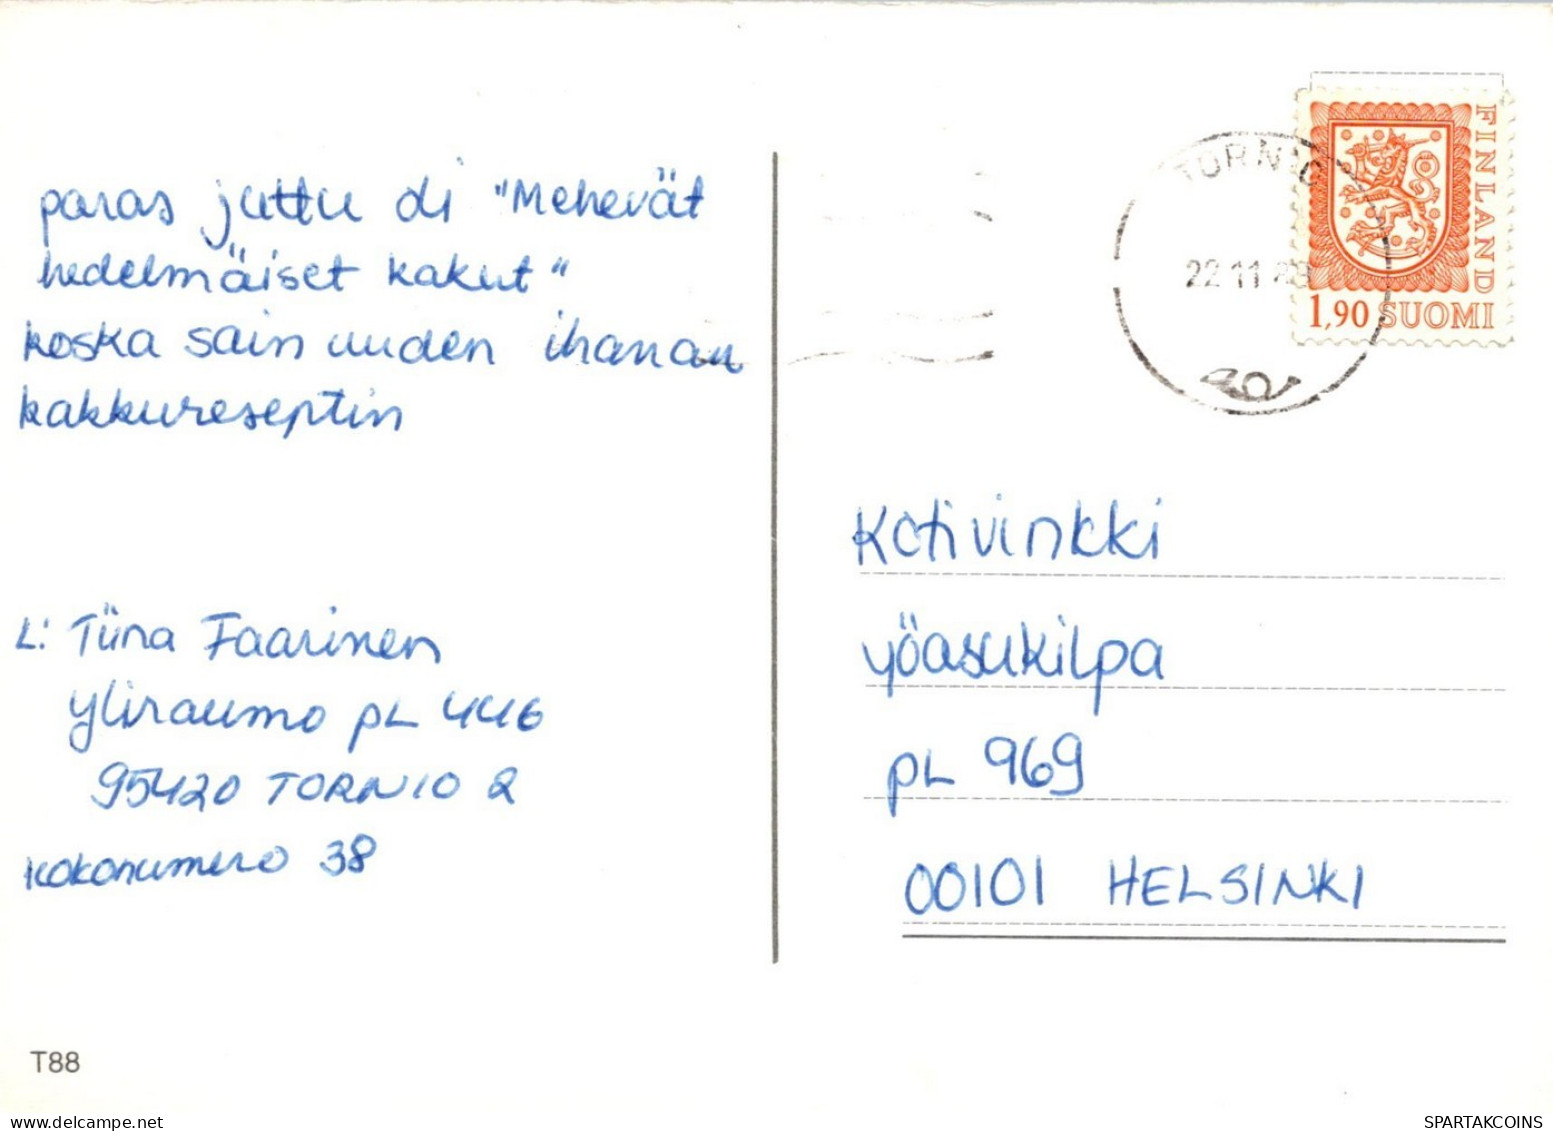 paras juttu oli "Mehevät
hedelmäiset kakut"
koska sain uuden ihanan
kakkureseptin
L: Tiina Faarinen
Yliraumo PL 446
95420 TORNIO 2
kokonumero 38
T88
FINLAND
1,90 SUOMI
TORNIO
22 11 88
Kotivinkki
yöasukilpa
PL 969
00101 HELSINKI
www.delcampe.net
SPARTAKCOINS